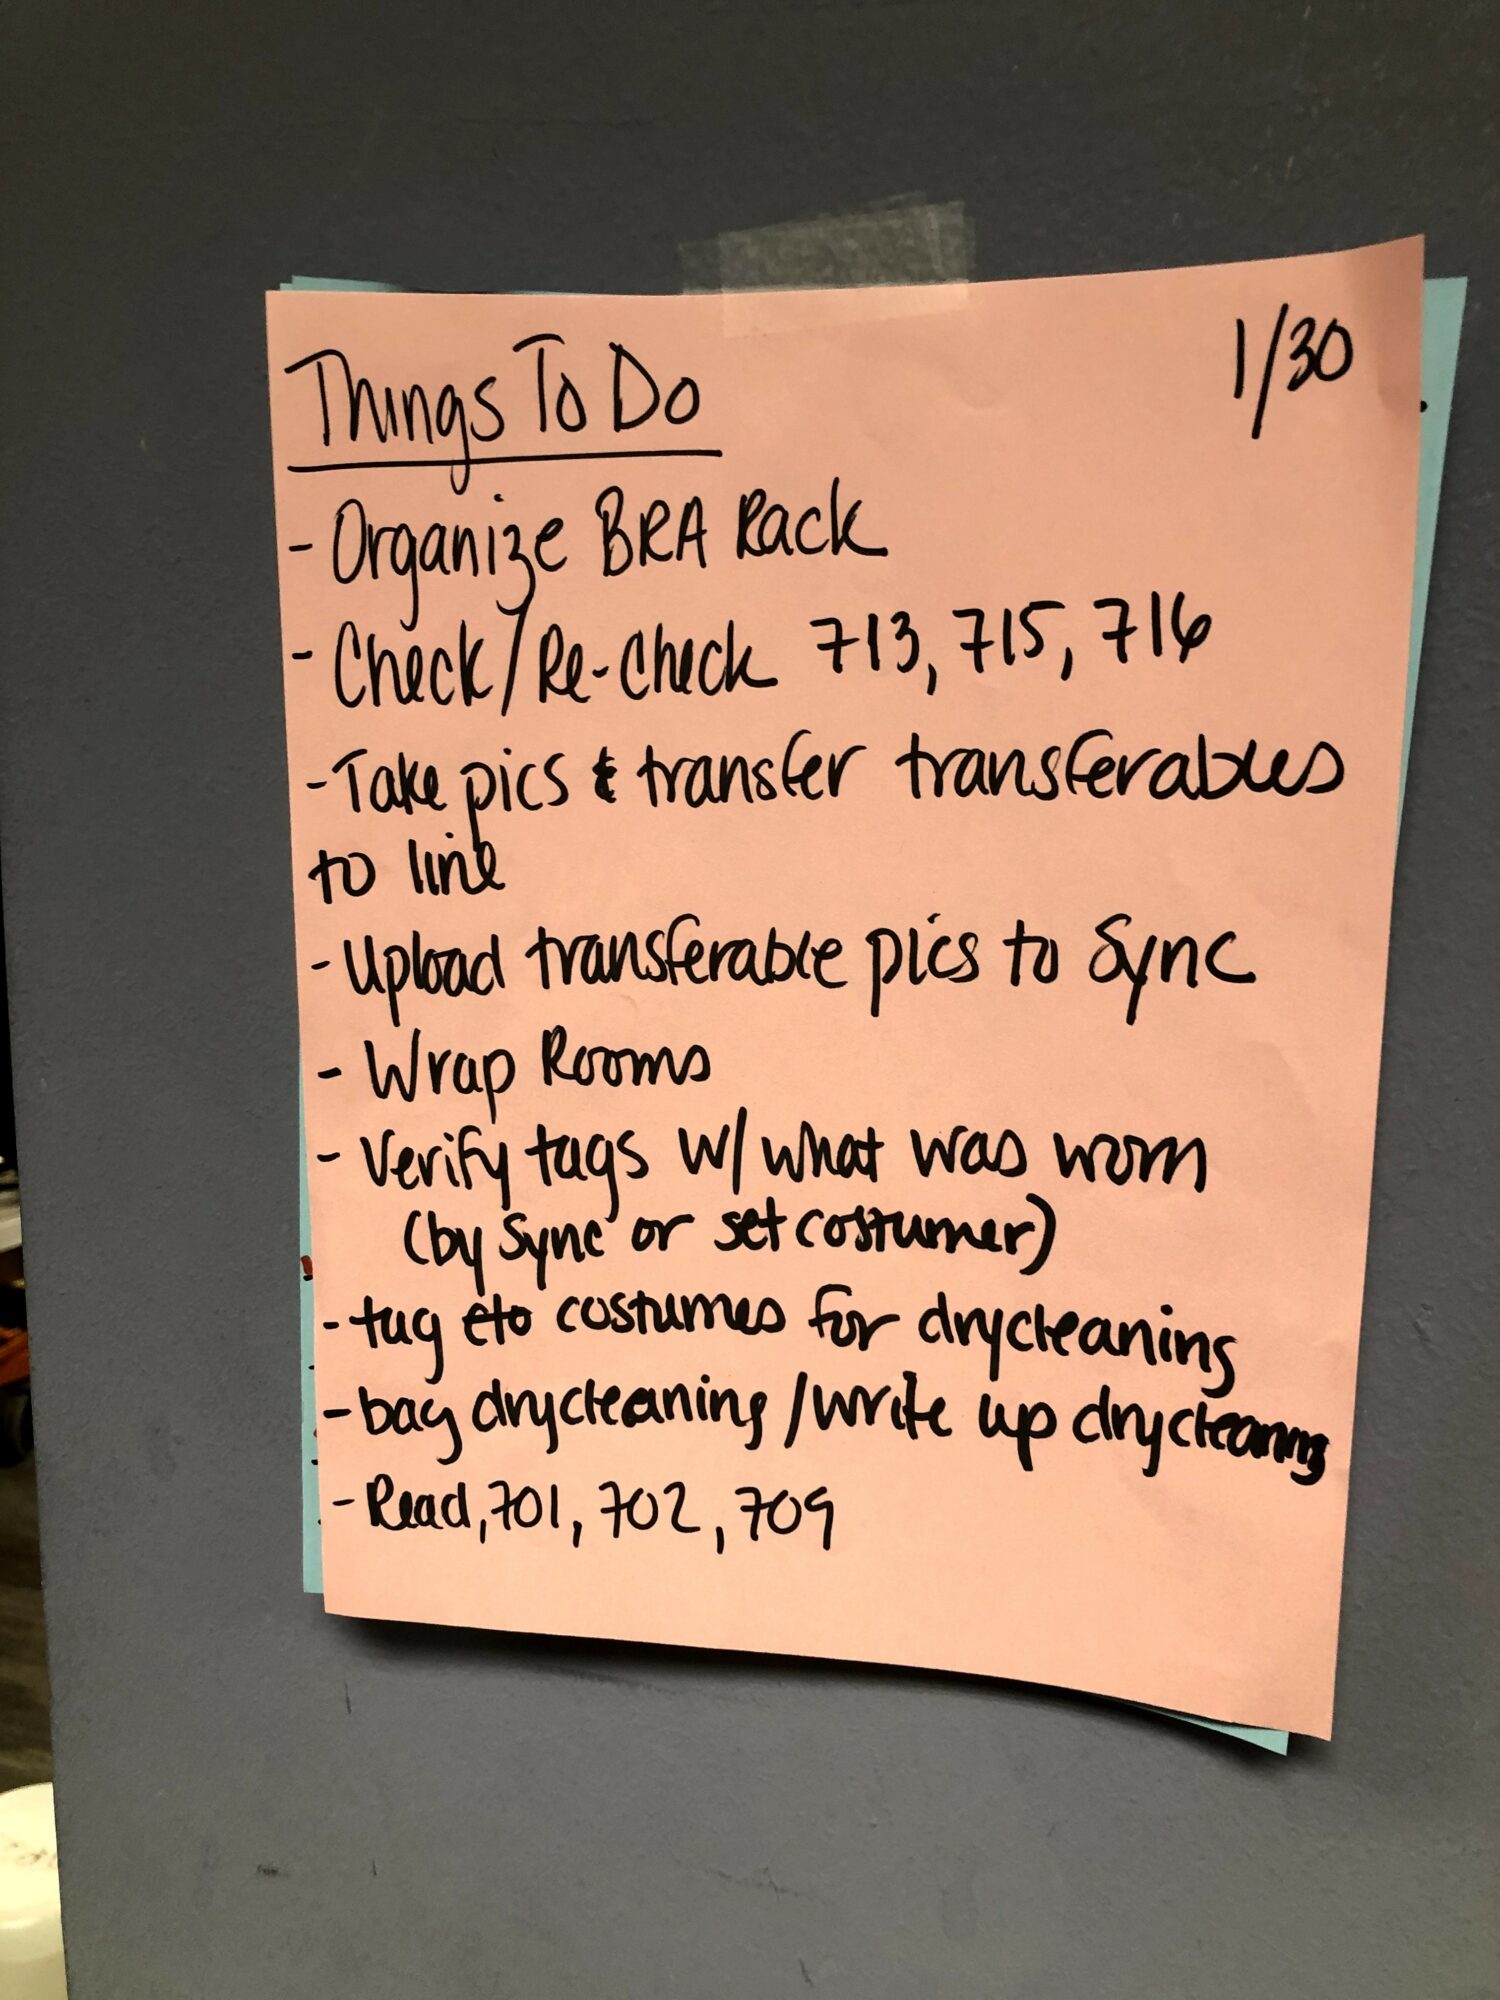 Things To Do 1/30
- Organize BRA Rack
- Check/Re-Check 713, 715, 716
- Take pics & transfer transferables
to line
- Upload transferable pics to Sync
- Wrap Rooms
- Verify tags w/ what was worn
(by Sync or set costumer)
- tag costumes for drycleaning
- bag drycleaning / write up drycleaning
- Read, 701, 702, 709